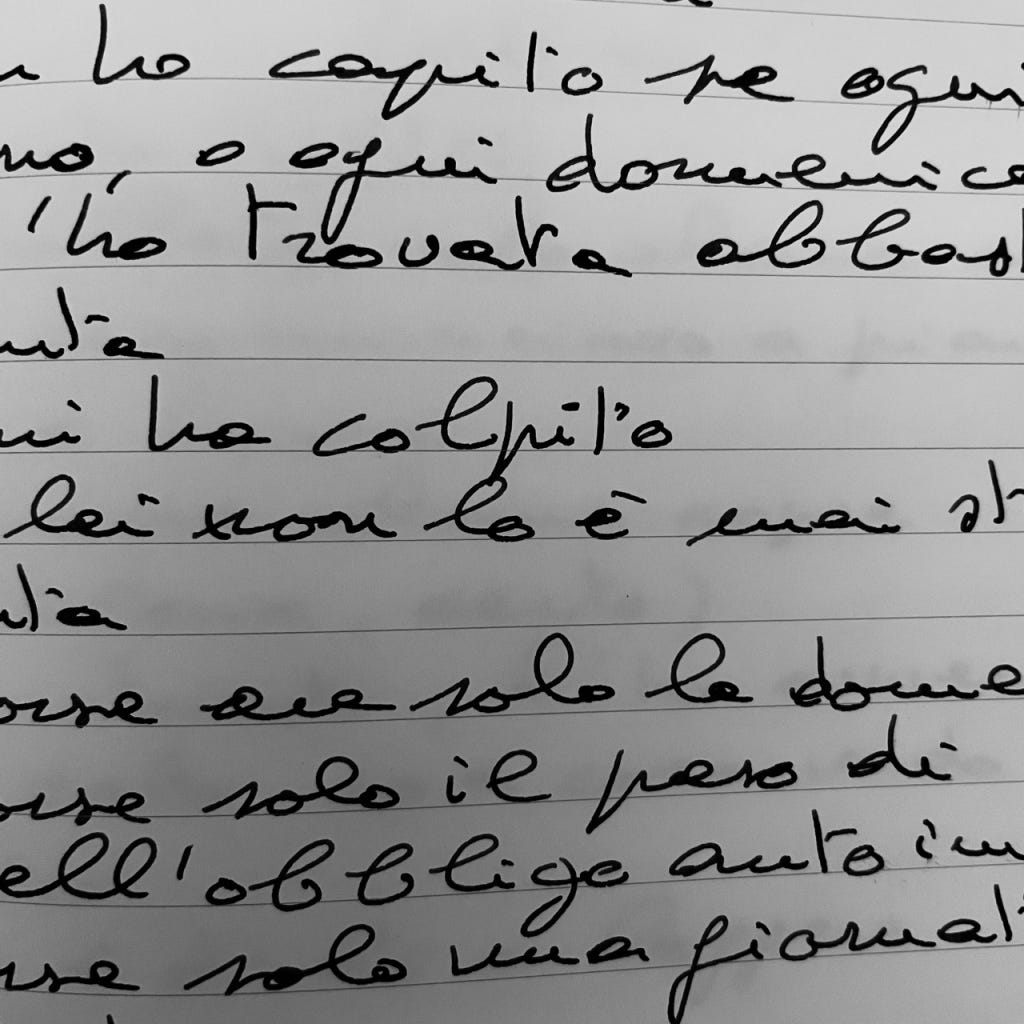 ho capito se ogni
no, o ogni domenica
l'ho trovata abbast
uta
mi ha colpito
lei non lo è mai st
uta
orse era solo la dome
orse solo il peso di
ell'obbligo auto im
rse solo una giornat